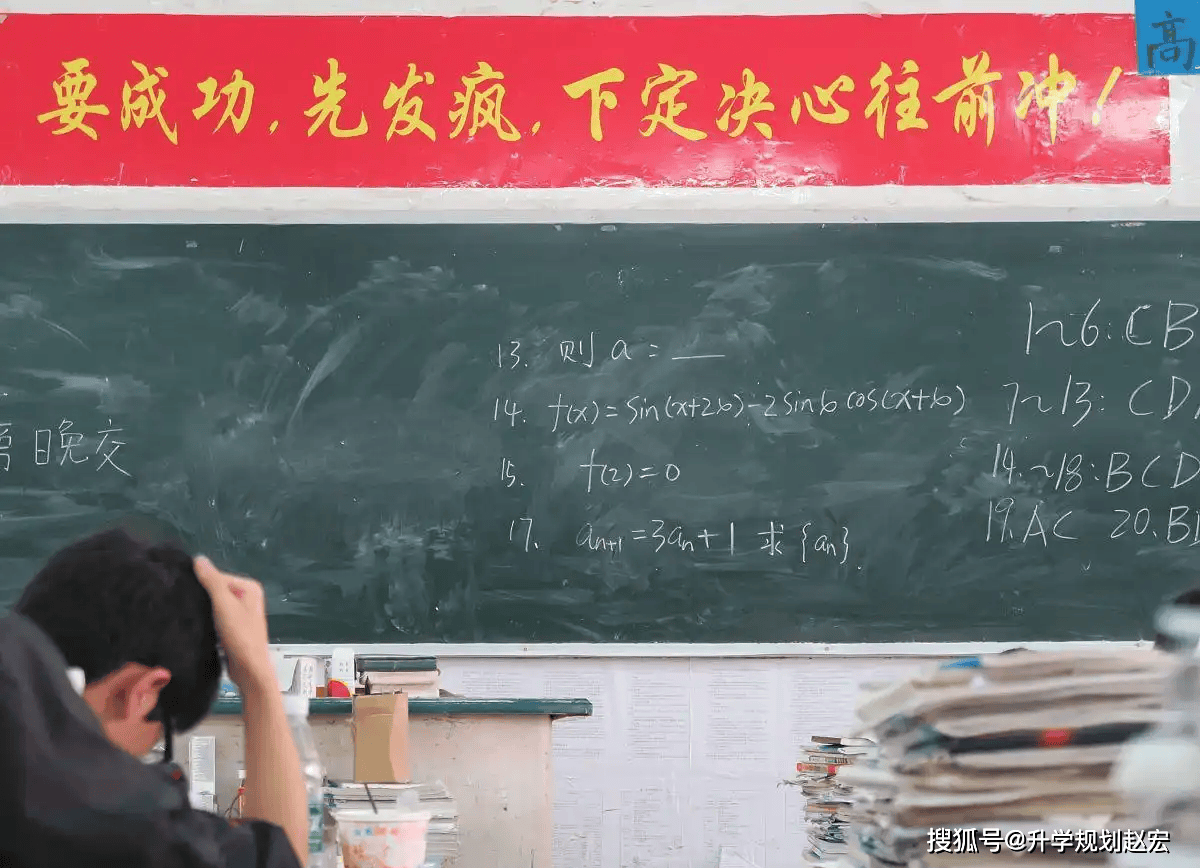 高
要成功,先发疯,下定决心往前冲!
1~6:CB
13. 则 a = ___
7~13: CD
14. f(x)=sin(x+2φ)-2sinφcos(x+φ)
日晚交
15. f(2)=0
14.~18:BCD
17. aₙ₊₁=3aₙ+1 求{aₙ}
19.AC 20.B
搜狐号@升学规划赵宏